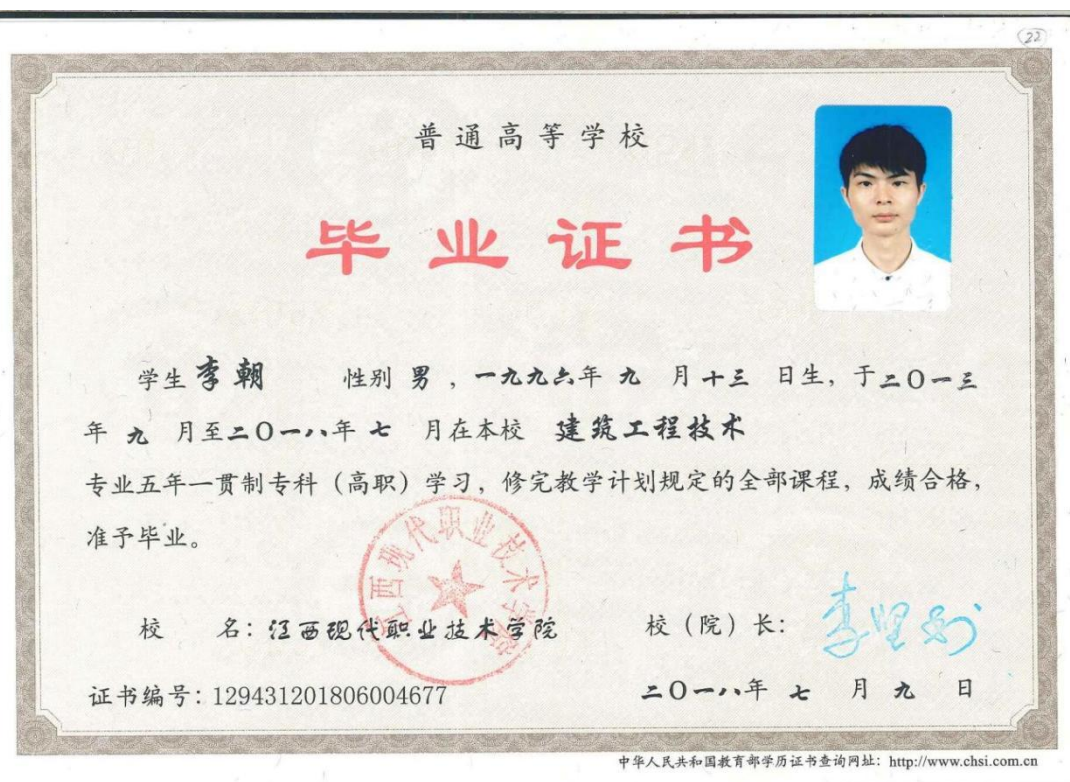 22
普通高等学校
毕业证书
学生 李朝 性别 男 ，一九九六年 九 月 十三 日生，于二〇一三
年 九 月至二〇一八年 七 月在本校 建筑工程技术
专业五年一贯制专科（高职）学习，修完教学计划规定的全部课程，成绩合格，
准予毕业。
江西现代职业技术学院
校 名：江西现代职业技术学院 校（院）长：
证书编号：129431201806004677 二〇一八年 七 月 九 日
中华人民共和国教育部学历证书查询网址：http://www.chsi.com.cn